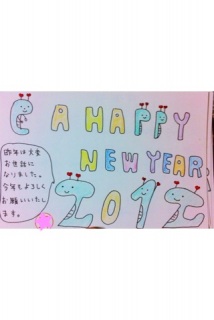 A HAPPY
NEW YEAR
2012
昨年は大変
お世話に
なりました。
今年もよろしく
お願いいたし
ます。